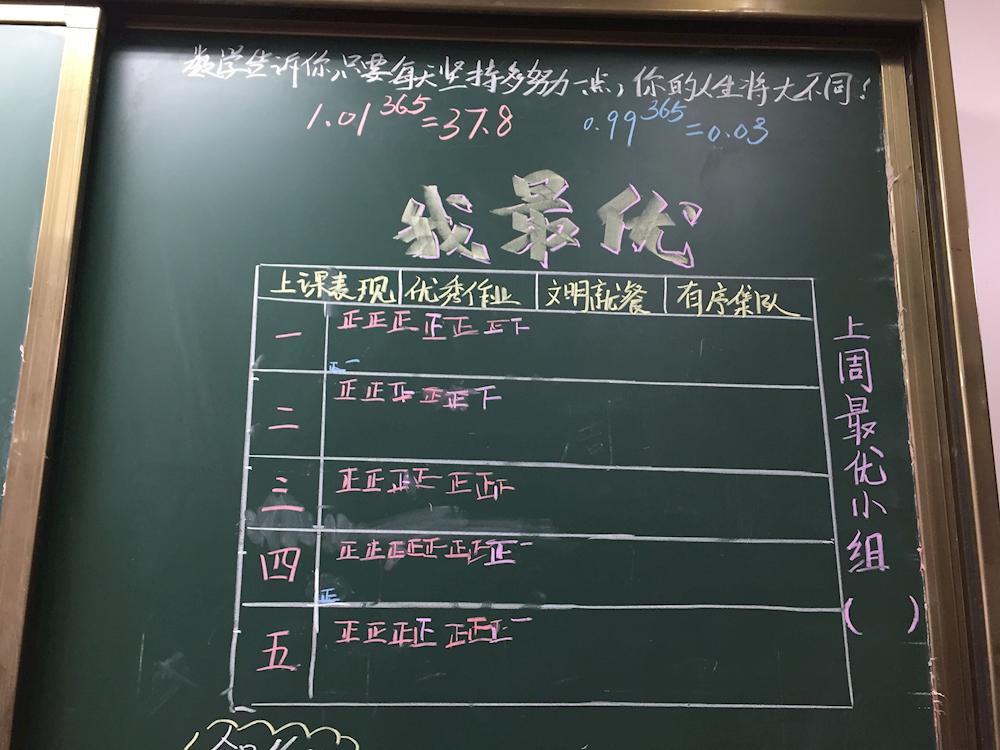 数学告诉你,只要每天坚持多努力一点,你的人生将大不同!
1.01^365=37.8 0.99^365=0.03
我最优
上课表现 优秀作业 文明就餐 有序集队
一 正正正正正正下
正一
二 正正正正正下
三 正正正正正正正
四 正正正正正正正正一
正
五 正正正正正正正一
上周最优小组( )